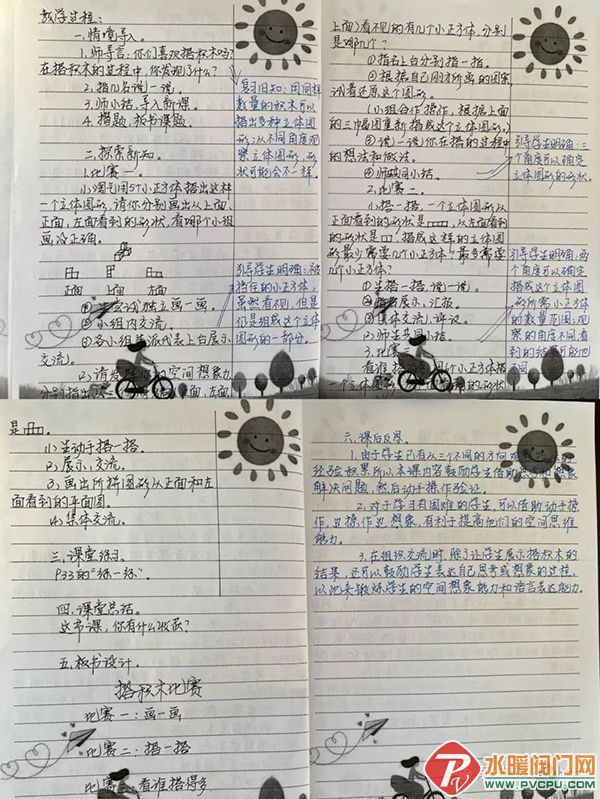 教学过程:
一、情境导入。
1.师导言:你们喜欢搭积木吗?
在搭积木的过程中,你发现了什么?
2.指几名说一说。
3.师小结,导入新课。
4.揭题,板书课题。
二、探索新知。
1.比赛一。
小淘气用5个小正方体搭出这样
一个立体图形,请你分别画出从上面、
正面,左面看到的形状,看哪个小组
画得正确。
正面 上面 左面
独立画一画。
②小组内交流。
③各小组派代表上台展示
交流。
空间想象力,
复习旧知:用同样
数量的积木可以
搭出多种立体图
形;从不同角度观
察立体图形,形
状可能会不一样。
引导学生明确:被
挡住的小正方体,
虽然看不见,但是
仍是组成这个立体
图形的一部分。
上面)看不见的有几个小正方体,分别
是哪几个?
①指名上台分别指一指。
②根据自己刚才所画的图案
试着还原这个图形。
(小组合作操作,根据上面
的三幅图重新搭成这个立体图形。)
③说一说你在搭的过程中
的想法和做法。
④师生共同小结。
2.比赛二。
小搭一搭,一个立体图形从
正面看到的形状是,从左面看到
的形状是,搭成这样的立体图
形最少需要几个小正方体?最多需要
几个小正方体?
①生搭一搭,说一说。
展示、汇报。
③集体交流,评议。
(2)师生共同小结。
3.比赛
看谁搭 个小正方体搭
一个立体图形
引导学生明确:三
个角度可以确定
立体图形的形状。
引导学生明确:两
个角度可以确定
搭成这个立体图
形所需小正方体
的数量范围;观
察的角度不同,看
到的结果可能也
不同
是。
(1)生动手搭一搭。
(2)展示、交流。
(3)画出所拼图形从正面和左
面看到的平面图。
(4)集体交流。
三、课堂练习。
P33的“练一练”。
四、课堂总结。
这节课,你有什么收获?
五、板书设计。
搭积木比赛
比赛一:画一画
比赛二:搭一搭
比赛三:看谁搭得多
六、课后反思。
1.由于学生已有从三个不同的方向观
经验 所以本课内容鼓励学生借助 想象
解决问题,然后动手操作验证。
2.对于学习有困难的学生,可以借助动手操
作,边操作边想象,有利于提高他们的空间思维
能力。
3.在组织交流时,除了让学生展示搭积木的
结果,还可以鼓励学生表达自己思考或想象的过程,
以此来锻炼学生的空间想象能力和语言表达能力。
水暖阀门网
WWW.PVCPU.COM